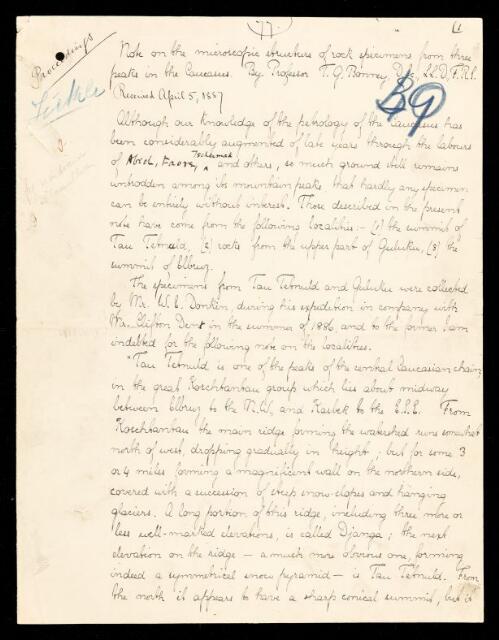 77.
(1
Proceedings
Note on the microscopic structure of rock specimens from three
peaks in the Caucasus. By Professor T. G. Bonney, D.Sc., LL.D., F.R.S.
Received April 5, 1887
Although our knowledge of the petrology of the Caucasus has
been considerably augmented of late years through the labours
of Abich, Favre, Tschermak, and others, so much ground still remains
untrodden among its mountain peaks that hardly any specimen
can be entirely without interest. Those described in the present
note have come from the following localities:- (1) the summit of
Tau Tetnuld, (2) rocks from the upper part of Guluku, (3) the
summit of Elbruz.
The specimens from Tau Tetnuld and Guluku were collected
by Mr. W. F. Donkin, during his expedition in company with
Mr. Clinton Dent in the summer of 1886, and to the former I am
indebted for the following note on the localities.
"Tau Tetnuld is one of the peaks of the central Caucasian chain,
in the great Koschtantau group which lies about midway
between Elbruz to the N.W. and Kasbek to the E.S.E. From
Koschtantau the main ridge forming the watershed runs somewhat
north of west, dropping gradually in height; but for some 3
or 4 miles forming a magnificent wall on the northern side,
covered with a succession of steep snow-slopes and hanging
glaciers. A long portion of this ridge, including three more or
less well-marked elevations, is called Djanga; the next
elevation on the ridge – a much more obvious one, forming
indeed a symmetrical snow pyramid – is Tau Tetnuld. From
the north it appears to have a sharp conical summit, but it